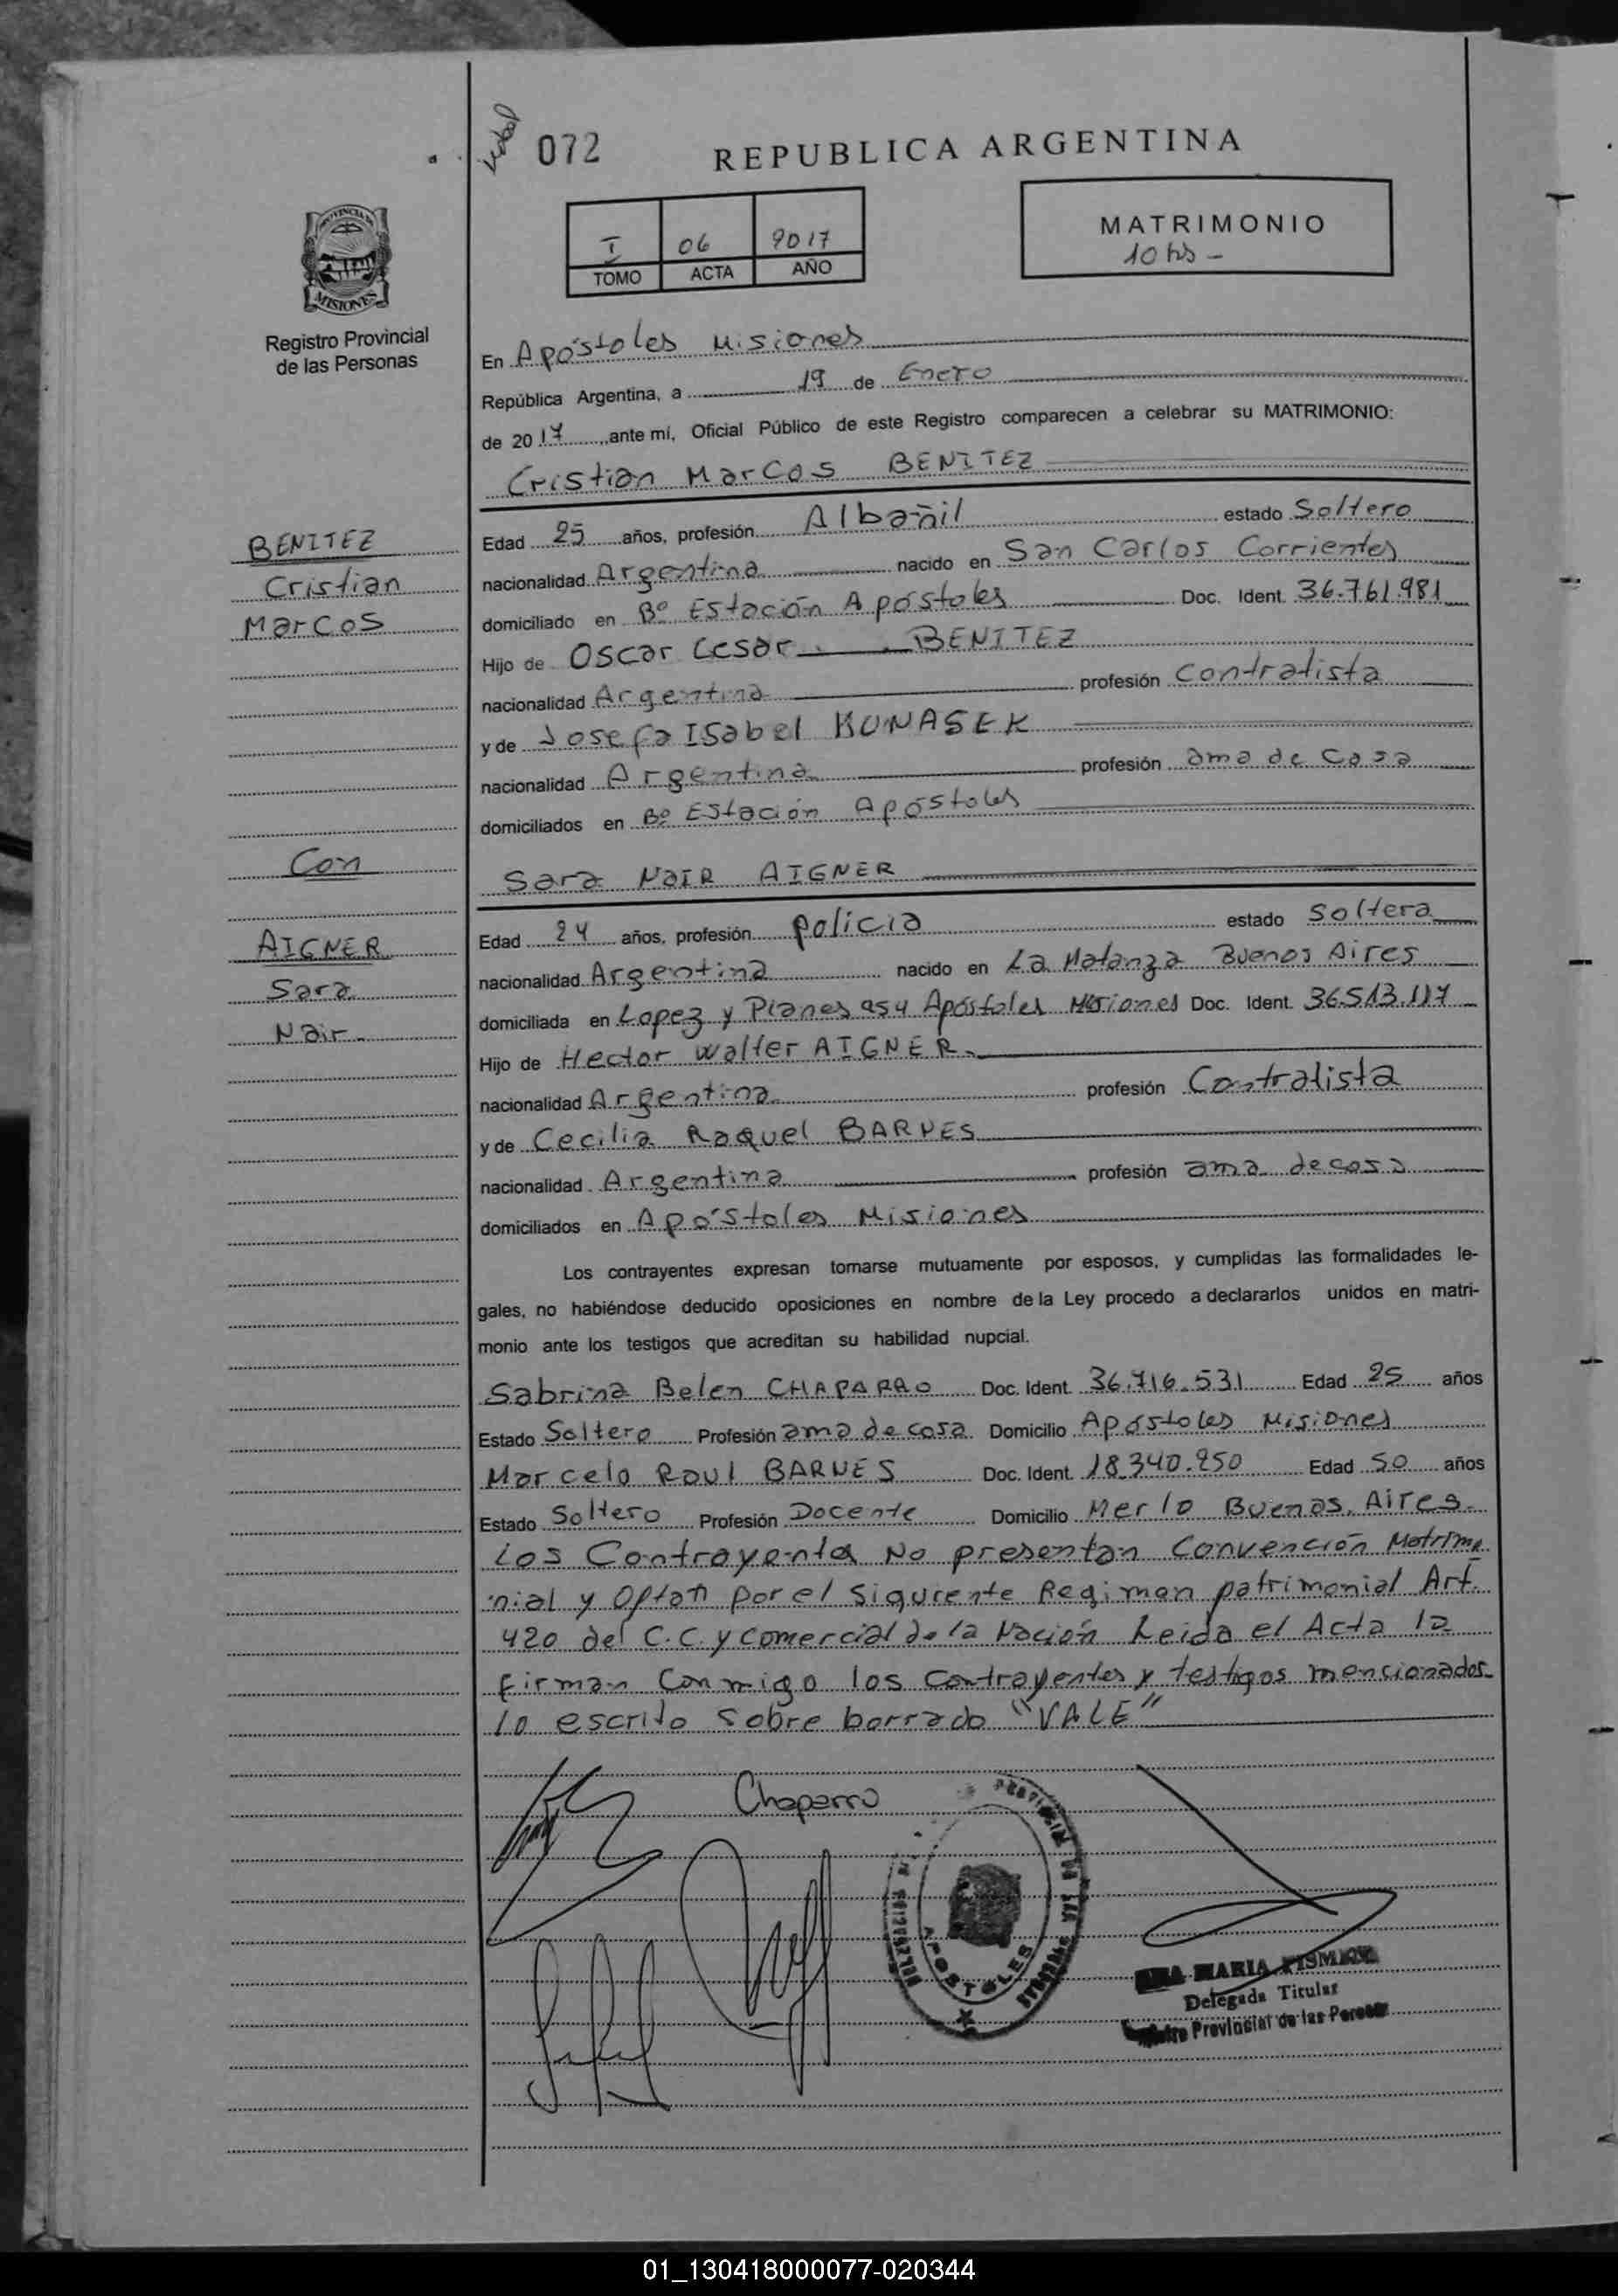 072
REPUBLICA ARGENTINA
PROVINCIA DE
MISIONES
Registro Provincial
de las Personas
I 06 2017
TOMO ACTA AÑO
MATRIMONIO
10 hs -
En Apóstoles Misiones
República Argentina, a 19 de Enero
de 2017, ante mí, Oficial Público de este Registro comparecen a celebrar su MATRIMONIO:
Cristian Marcos BENITEZ
BENITEZ
Cristian
Marcos
Edad 25 años, profesión Albañil estado Soltero
nacionalidad Argentina nacido en San Carlos Corrientes
domiciliado en Bº Estación Apóstoles Doc. Ident. 36.761.981
Hijo de Oscar Cesar BENITEZ
nacionalidad Argentina profesión Contratista
y de Josefa Isabel KUNASEK
nacionalidad Argentina profesión ama de Casa
domiciliados en Bº Estación Apóstoles
Con
Sara NaIR AIGNER
AIGNER
Sara
Nair
Edad 24 años, profesión policia estado Soltera
nacionalidad Argentina nacido en La Matanza Buenos Aires
domiciliada en Lopez y Planes 954 Apóstoles Misiones Doc. Ident. 36.513.117
Hijo de Hector Walter AIGNER
nacionalidad Argentina profesión Contratista
y de Cecilia Raquel BARNES
nacionalidad Argentina profesión ama de casa
domiciliados en Apóstoles Misiones
Los contrayentes expresan tomarse mutuamente por esposos, y cumplidas las formalidades le-
gales, no habiéndose deducido oposiciones en nombre de la Ley procedo a declararlos unidos en matri-
monio ante los testigos que acreditan su habilidad nupcial.
Sabrina Belen CHAPARRO Doc. Ident. 36.716.531 Edad 25 años
Estado Soltero Profesión ama de casa Domicilio Apóstoles Misiones
Marcelo Raul BARNES Doc. Ident. 18.340.250 Edad 50 años
Estado Soltero Profesión Docente Domicilio Merlo Buenos Aires
Los Contrayentes No presentan Convención Matrimo
nial y Optan por el Siguiente Regimen patrimonial Art.
420 del C.C. y Comercial de la Nación Leida el Acta la
firman Conmigo los Contrayentes y testigos mencionados
lo escrito sobre borrado "VALE"
Chaparro
APOSTOLES
MARIA
Delegada Titular
Provincial de las Personas
01_130418000077-020344